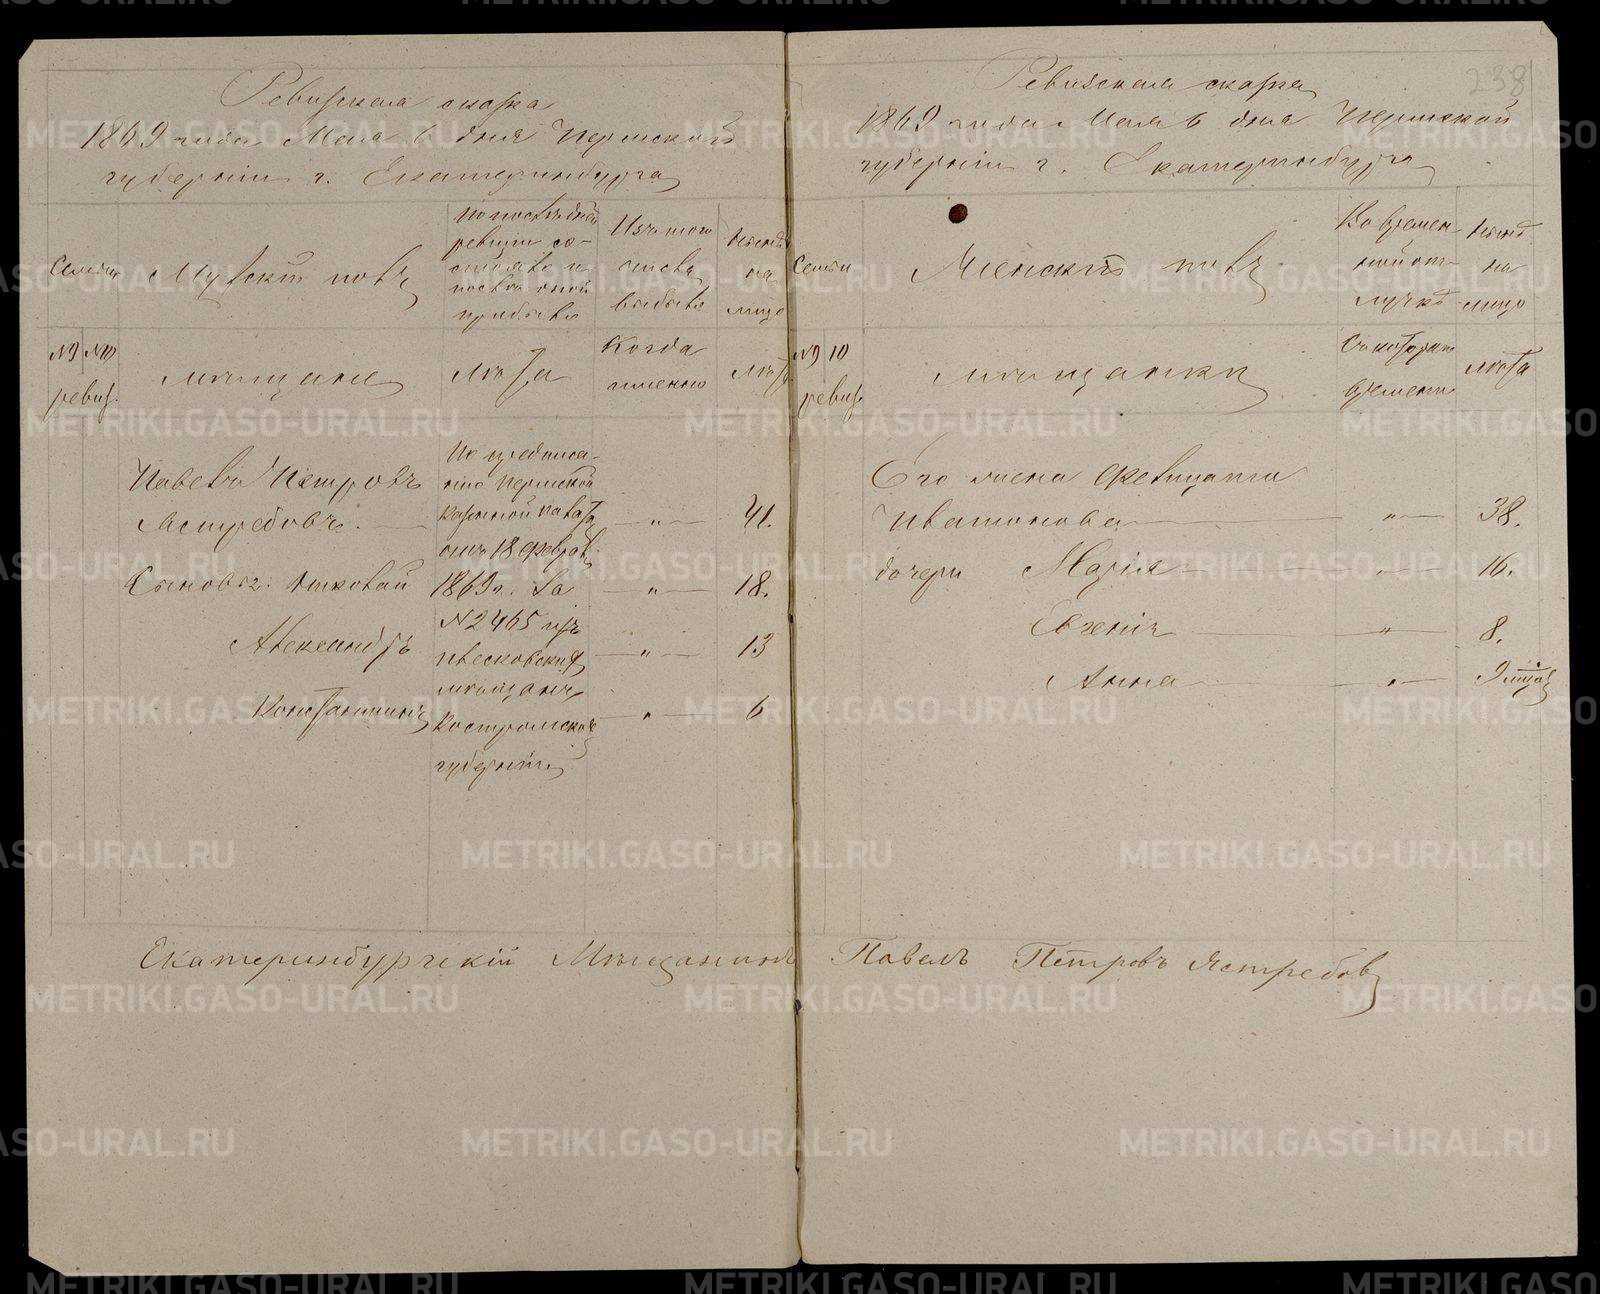 Ревизская скаска
1869 года Мая 6 дня Пермской
губернiи г. Екатеринбурга
Семьи
Мужскiй полъ
По последней
ревизiи со-
стояло и
после оной
прибыло
Изъ того
числа
выбыло
Ныне
на
лицо
№9 №10
ревиз.
мѣщане
лѣта
Когда
именно
лѣта
Павелъ Петровъ
Ястребовъ.
По предписа-
нiю Пермской
казенной палаты
отъ 18 Феврал.
1869 г. за
№ 2465 изъ
Плесковскихъ
мѣщанъ
Костромской
губернiи
" 41.
Сыновья: Николай " 18.
Александръ " 13
Константинъ " 6
Ревизская скаска
238
1869 года Мая 6 дня Пермской
губернiи г. Екатеринбурга
Семьи
Женскiй полъ
Во времен-
ной от-
лучкѣ
Ныне
на
лицо
№9 10
ревиз.
мѣщанки
Съ котораго
времени
лѣта
Его жена Фелицата
Платонова " 38.
дочери Марiя " 16.
Евгенiя " 8.
Анна " 9 месяцов
Екатеринбургскiй Мѣщанинъ Павелъ Петровъ Ястребов
METRIKI.GASO-URAL.RU